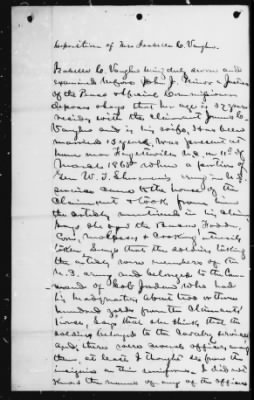 Deposition of Mrs Isabella C. Vaughn.
Isabella C. Vaughn being duly sworn and
examined before John J. Minor a Justice
of the Peace & Special Commissioner
deposes & says that her age is 32 years
resides with the claimant James C.
Vaughn and is his wife, has been
married 15 years, was present at
home near Fayetteville N.C. on 11th of
March 1865 when a portion of
Gen W. T. Shermans army in U.S.
service came to the house of the
Claimant & took from him
the articles mentioned in his claim
says she saw the Bacon, Fodder,
Corn, molasses & cooking utensils
taken. Says that the soldiers taking
the articles were members of the
U.S. army and belonged to the Com-
mand of who had
his headquarters about two or three
hundred yards from the Claimants
house, says that she thinks that the
soldiers belonged to the Cavalry service
and, there were several officers among
them, at least I thought so from the
insignia on their uniforms. I did not
know the names of any of the officers